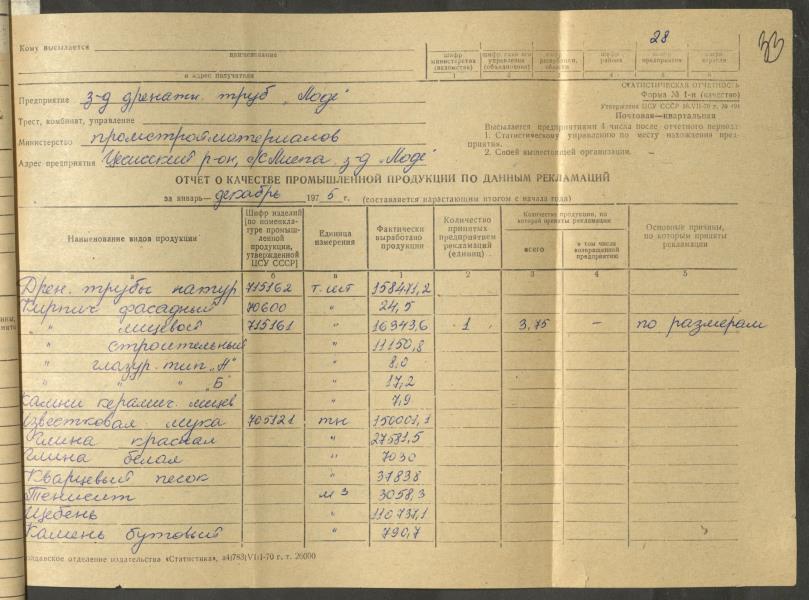 28
33
Кому высылается
наименование
и адрес получателя
шифр министерства (ведомства)
шифр главного управления (объединения)
шифр республики, области
шифр района
шифр предприятия
шифр отрасли
1 2 3 4 5 6
СТАТИСТИЧЕСКАЯ ОТЧЕТНОСТЬ
Форма № 1-н (качество)
Утверждена ЦСУ СССР
Почтовая—квартальная
Высылается предприятиями 4 числа после отчетного период:
1. Статистическому управлению по месту нахождения пред-
приятия.
2. Своей вышестоящей организации.
Предприятие з-д дренажн. труб „Лоде"
Трест, комбинат, управление
Министерство промстройматериалов
Адрес предприятия Цесисский р-он, з-д „Лоде"
ОТЧЕТ О КАЧЕСТВЕ ПРОМЫШЛЕННОЙ ПРОДУКЦИИ ПО ДАННЫМ РЕКЛАМАЦИЙ
за январь— декабрь 1975 г. (составляется нарастающим итогом с начала года)
Наименование видов продукции
Шифр изделий [по номенкла-
туре промыш-
ленной
продукции,
утвержденной
ЦСУ СССР]
Единица
измерения
Фактически
выработано
продукции
Количество
принятых
предприятием
рекламаций
(единиц)
Количество продукции, на
которой приняты рекламации
всего
в том числе
возвращенной
предприятию
Основные причины,
по которым приняты
рекламации
а б в 1 2 3 4 5
Дрен. трубы натур 715162 т.шт 158471,2
Кирпич фасадный 70600 " 24,5
" лицевой 715161 " 16343,6 1 3,75 – по размерам
" строительный " 11150,8
" глазур. тип „А" " 8,0
" " „Б" " 17,2
Камни керамич. лицев " 7,9
Известковая мука 705121 тн 150001,1
Глина красная " 27581,5
Глина белая " 7030
Кварцевый песок " 37838
Тенисит м3 3058,3
Щебень " 110731,1
Камень бутовый " 790,7
отделение издательства «Статистика», VII-70 г. т. 20000